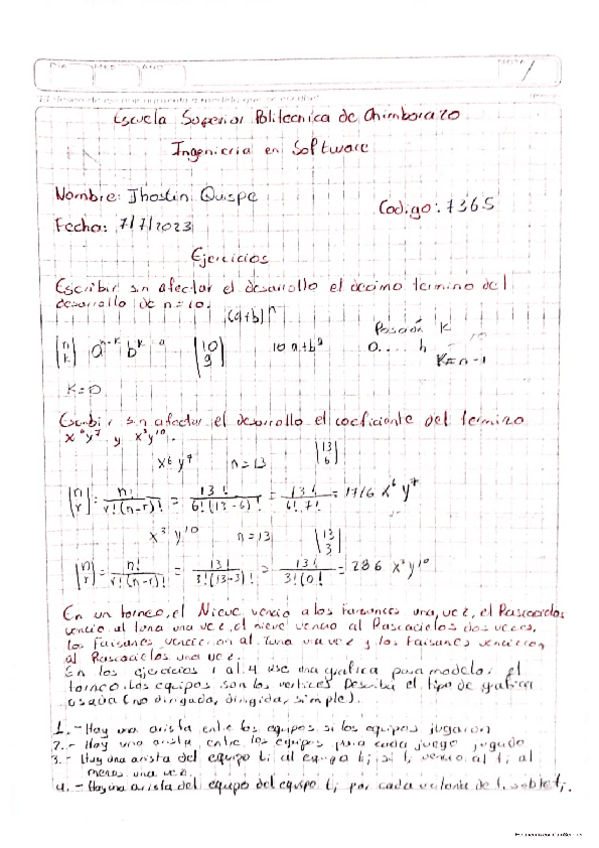 DIA MES AÑO
Escuela Superior Politecnica de Chimborazo
Ingenieria en Software
Nombre: Jhostin Quispe
Codigo: 7365
Fecha: 7/7/2023
Ejercicios
Escribir sin afectar el desarrollo el decimo termino del
desarrollo de n=10.
(a+b)^n
Posición K
[n k] a^n-k b^k [10 9] 10 a+b^9 0.... h K=n-1
K=0
Escribir sin afectar el desarrollo el coeficiente del termino
x^6y^7 y x^3y^10.
x^6 y^7 n=13 [13 6]
[n r] = n! / r!(n-r)! = 13! / 6!(13-6)! = 13! / 6! 7! = 1716 x^6 y^7
x^3 y^10 n=13 [13 3]
[n r] = n! / r!(n-r)! = 13! / 3!(13-3)! = 13! / 3!10! = 286 x^3y^10
En un torneo, el Nieve vencio a los faisanes una vez, el Rascacielos
vencio al luna una vez, el nieve vencio al Rascacielos dos veces,
los faisanes vencieron al luna una vez y los faisanes vencieron
al Rascacielos una vez.
En los ejercicios 1 al 4 use una grafica para modelar el
torneo. Los equipos son los vertices Describa el tipo de grafica
usada (no dirigada, dirigida, simple).
1.- Hay una arista entre los equipos si los equipos jugaron
2.- Hay una arista entre los equipos para cada juego jugado
3.- Hay una arista del equipo ti al equipo tj si ti vencio al tj al
menos una vez.
4.- Hay una arista del equipo del equipo ti por cada victoria de ti sobre tj.